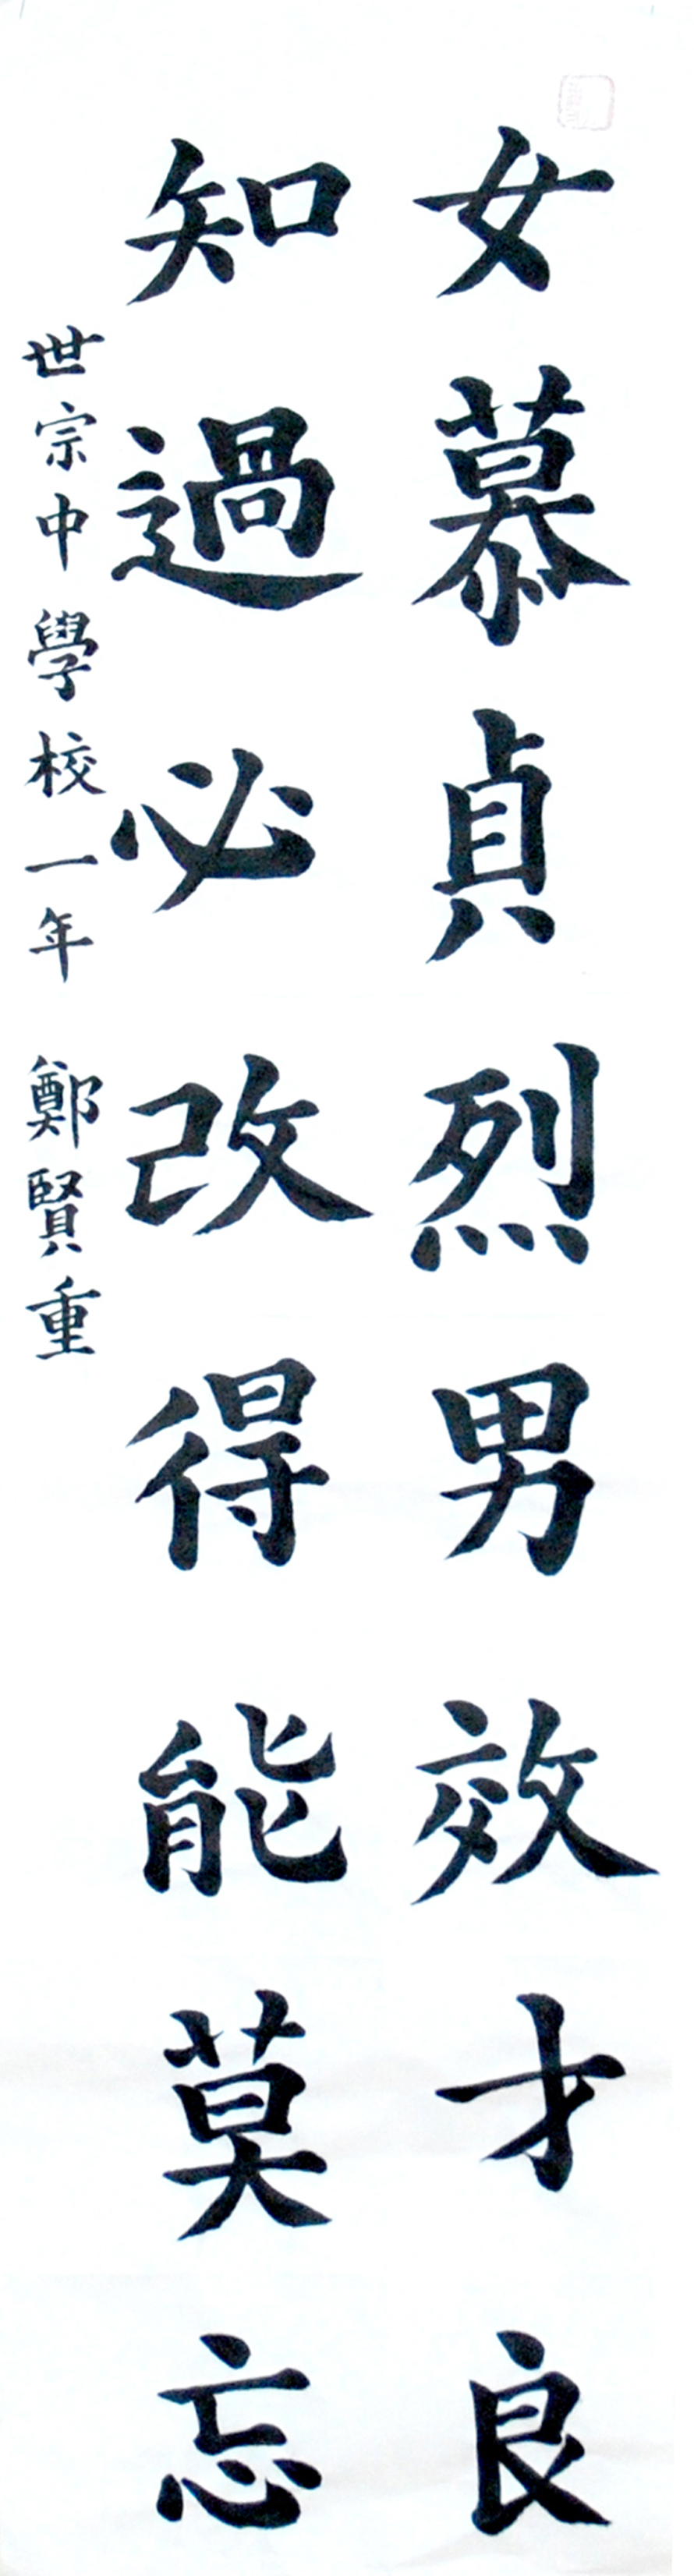 女慕貞烈男效才良
知過必改得能莫忘
世宗中學校一年 鄭賢重